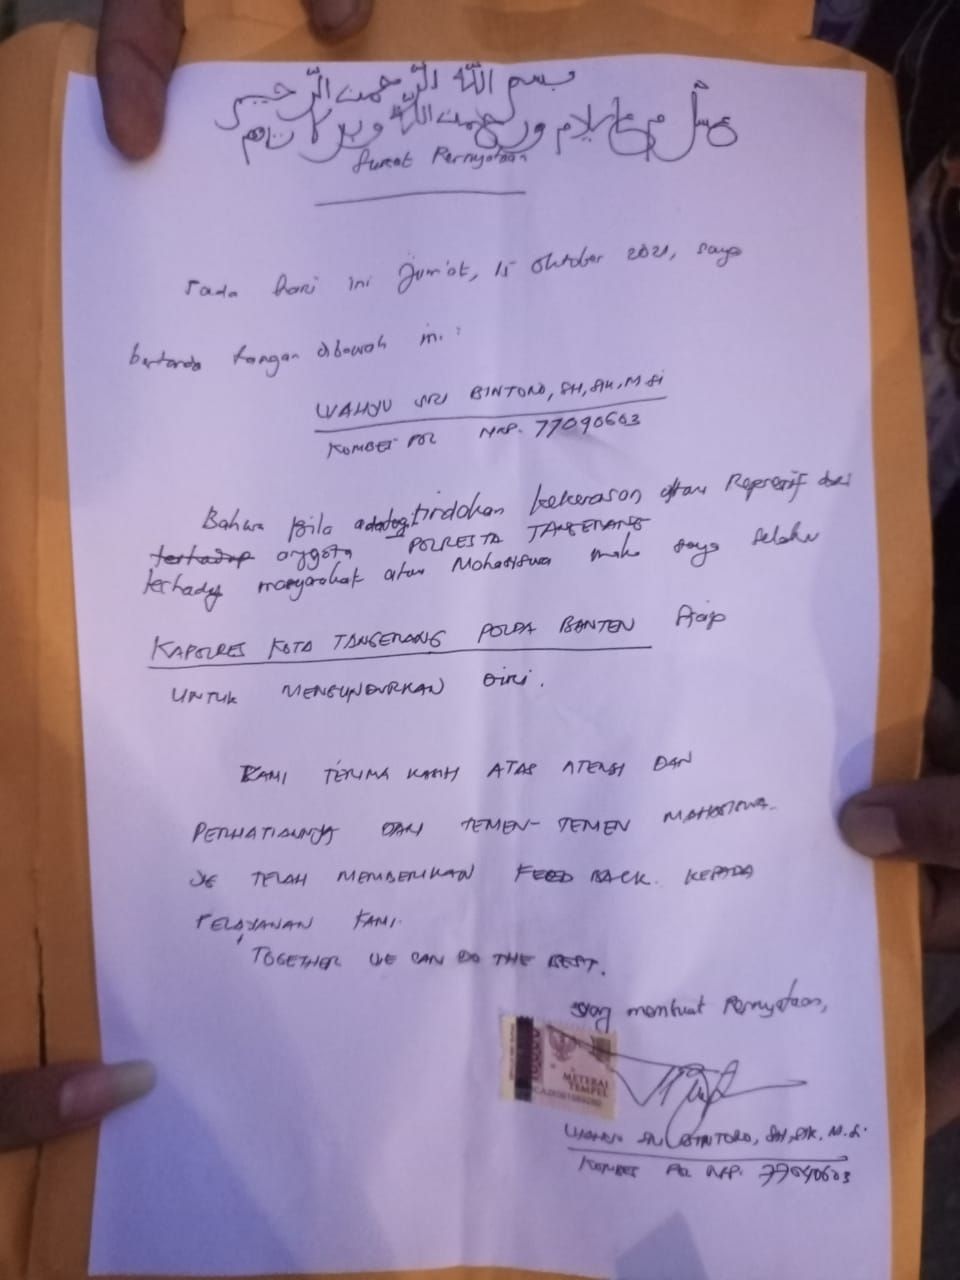 بسم الله الرحمن الرحيم
Surat Pernyataan
Pada hari ini Jum'at, 15 Oktober 2021, saya
bertanda tangan dibawah ini :
WAHYU SRI BINTORO, SH, SIK, M.Si
KOMBES POL NRP. 77090603
Bahwa bila ada tindakan kekerasan atau Represif dari
terhadap anggota POLRESTA TANGERANG
terhadap masyarakat atau Mahasiswa maka saya selaku
KAPOLRES KOTA TANGERANG POLDA BANTEN Siap
UNTUK MENGUNDURKAN DIRI.
KAMI TERIMA KASIH ATAS ATENSI DAN
PERHATIANNYA DARI TEMEN-TEMEN MAHASISWA
YG TELAH MEMBERIKAN FEED BACK KEPADA
PELAYANAN KAMI.
TOGETHER WE CAN DO THE BEST.
yang membuat Pernyataan,
METERAI
TEMPEL
WAHYU SRI BINTORO, SH, SIK, M.Si
KOMBES POL NRP.